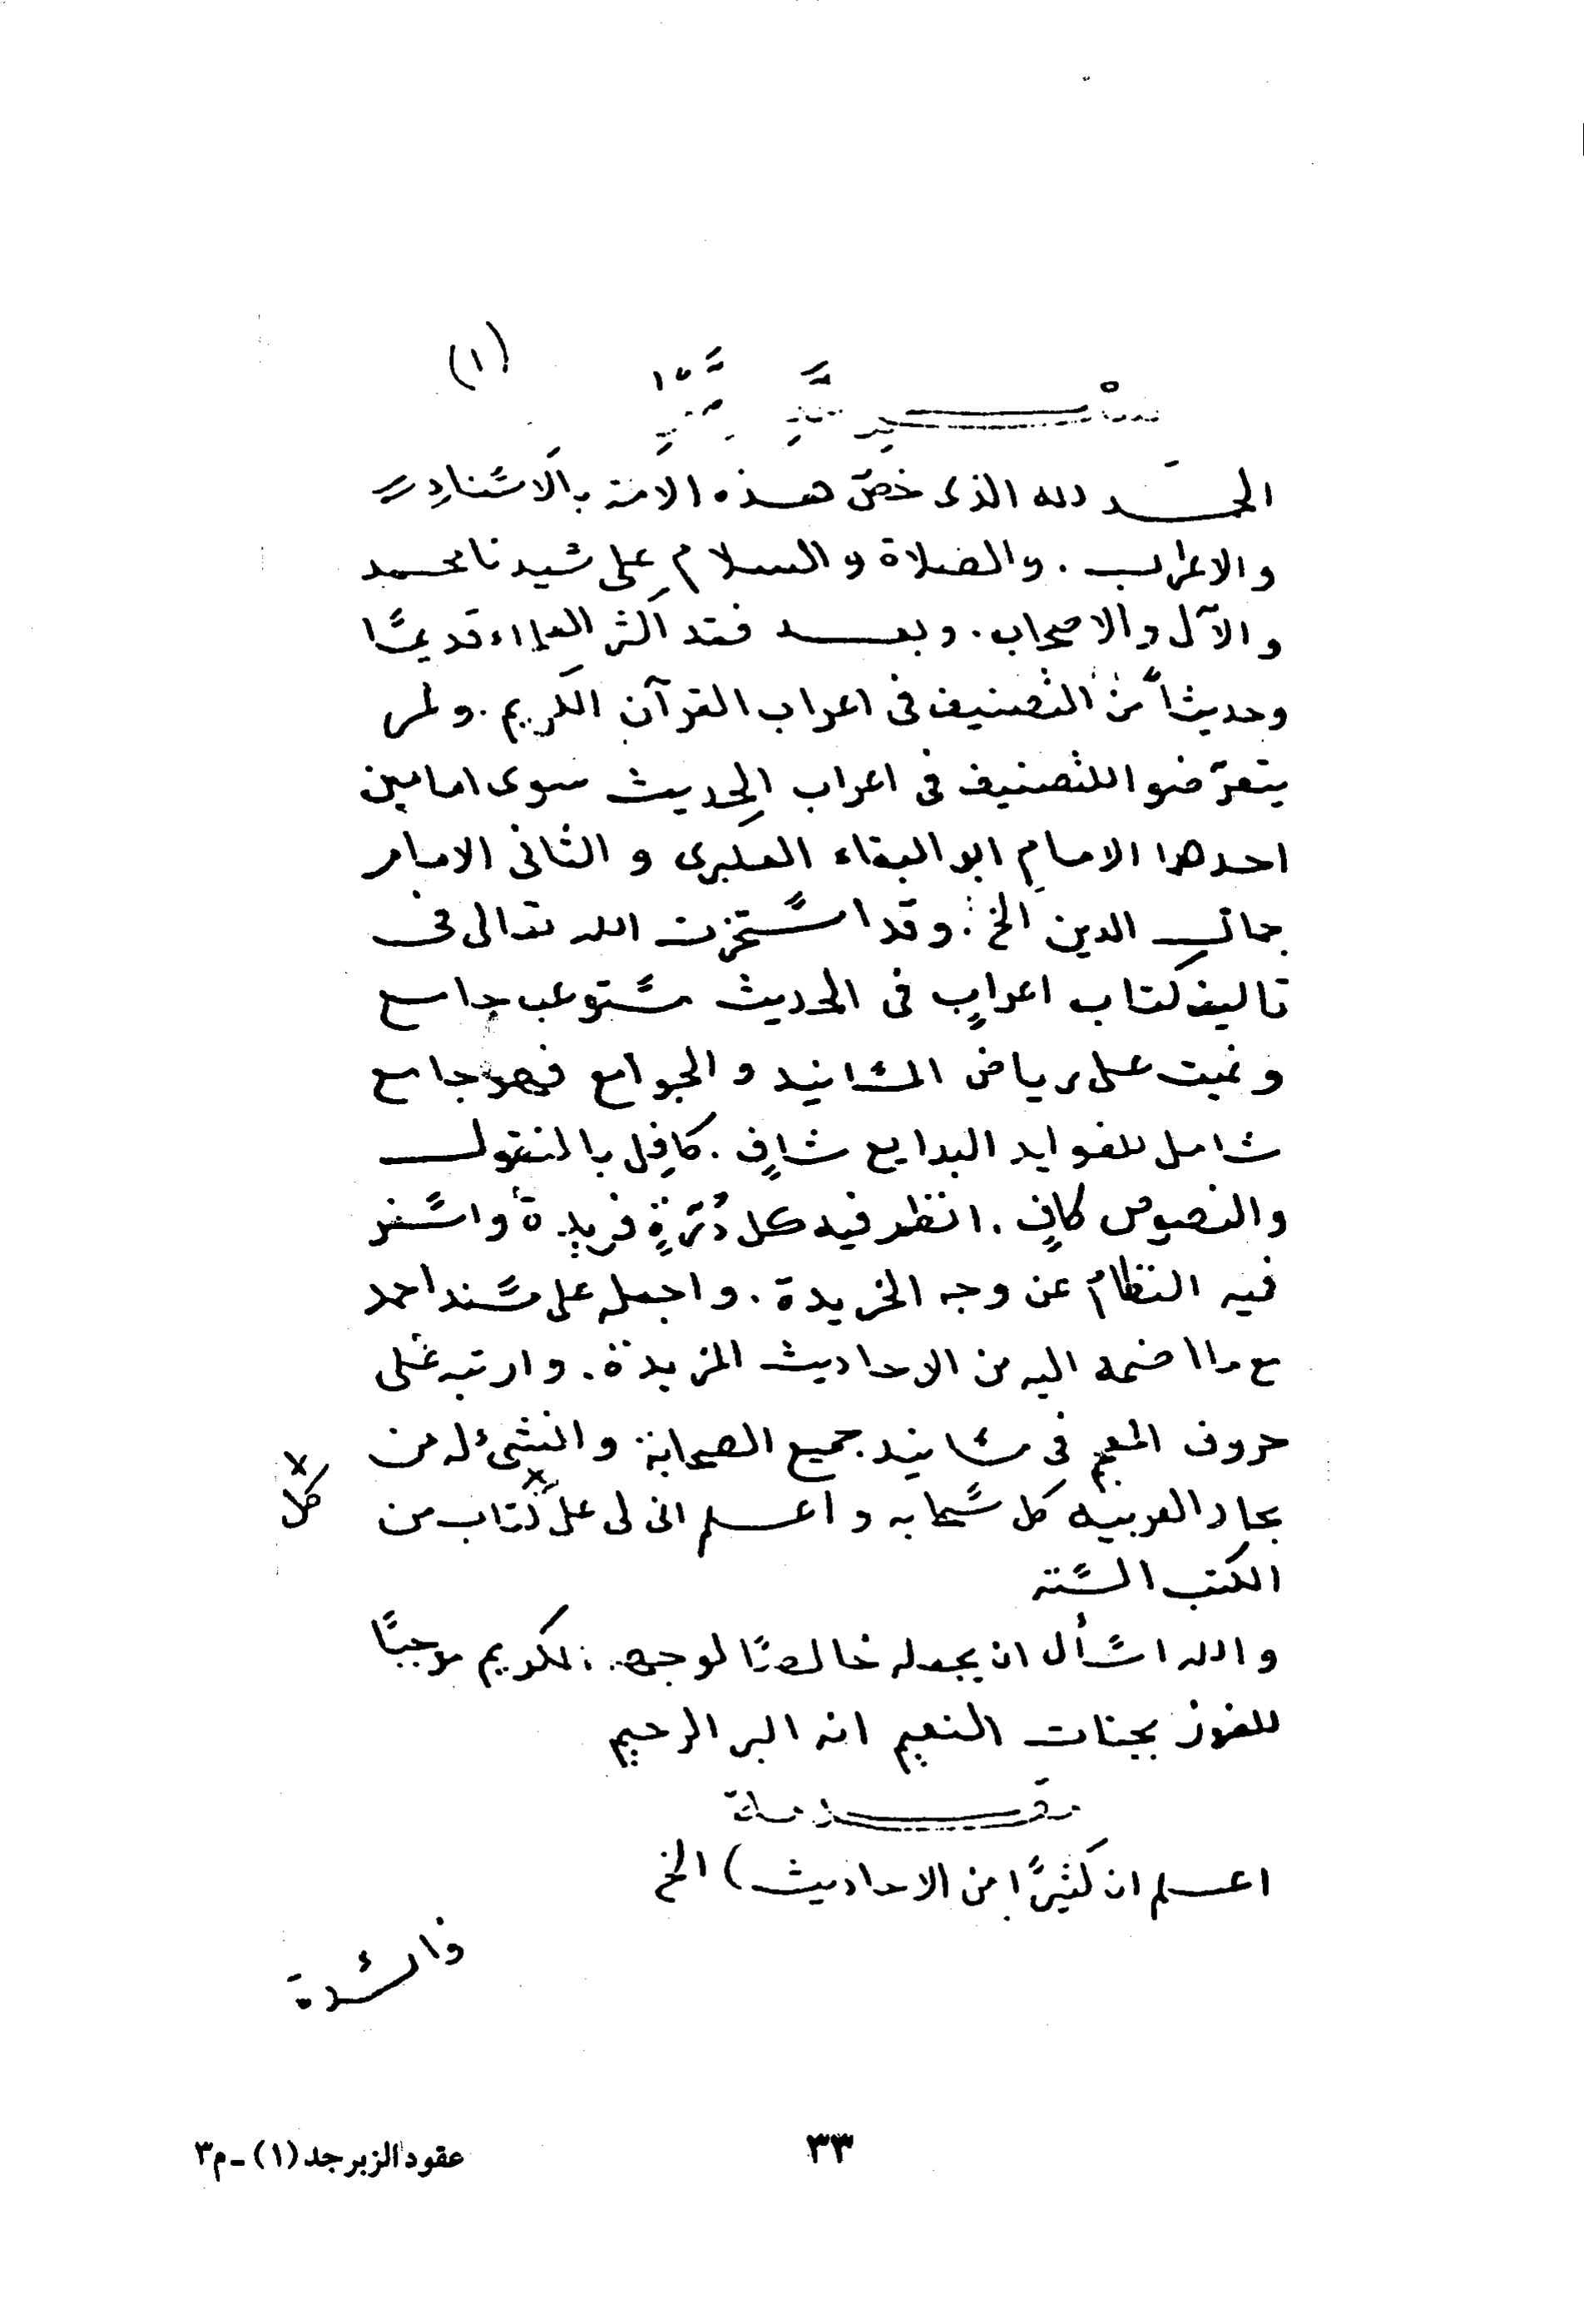 (١)
بسم الله
الحمد لله الذى خصّ هذه الامة بالاسناد
والاعراب . والصلاة والسلام على سيدنا محمد
والآل والاصحاب . وبعد فقد اكثر العلماء قديمًا
وحديثاً من التصنيف فى اعراب القرآن الكريم . ولم
يتعرّضوا للتصنيف فى اعراب الحديث سوى امامين
احدهما الامام ابو البقاء العكبرى و الثانى الامام
جمال الدين الخ . وقد استخرت الله تعالى فى
تاليف كتاب اعراب فى الحديث مستوعب جامع
وغيث على رياض المسانيد و الجوامع فهو جامع
شامل للفوايد البدايع شافٍ . كافِل بالمنقول
والنصوص كافٍ . انظر فيه كل دُرّةٍ فريدة واسفر
فيه النظام عن وجه الخريدة . واجعله على مسند احمد
مع ما اضمه اليه من الاحاديث المزيدة . وارتبه على
حروف المعجم فى مسانيد جميع الصحابة وانشئ له من
بحار العربيه كل سحابه واعلم انى لى على كتاب من
كل
الكتب الستة
والله اسأل ان يجعله خالصًا لوجهه الكريم موجبًا
للفوز بجنات النعيم انه البر الرحيم
مقدمة
اعلم ان كثيرًا من الاحاديث) الخ
فائدة
٣٣
عقود الزبرجد (١) - م٣